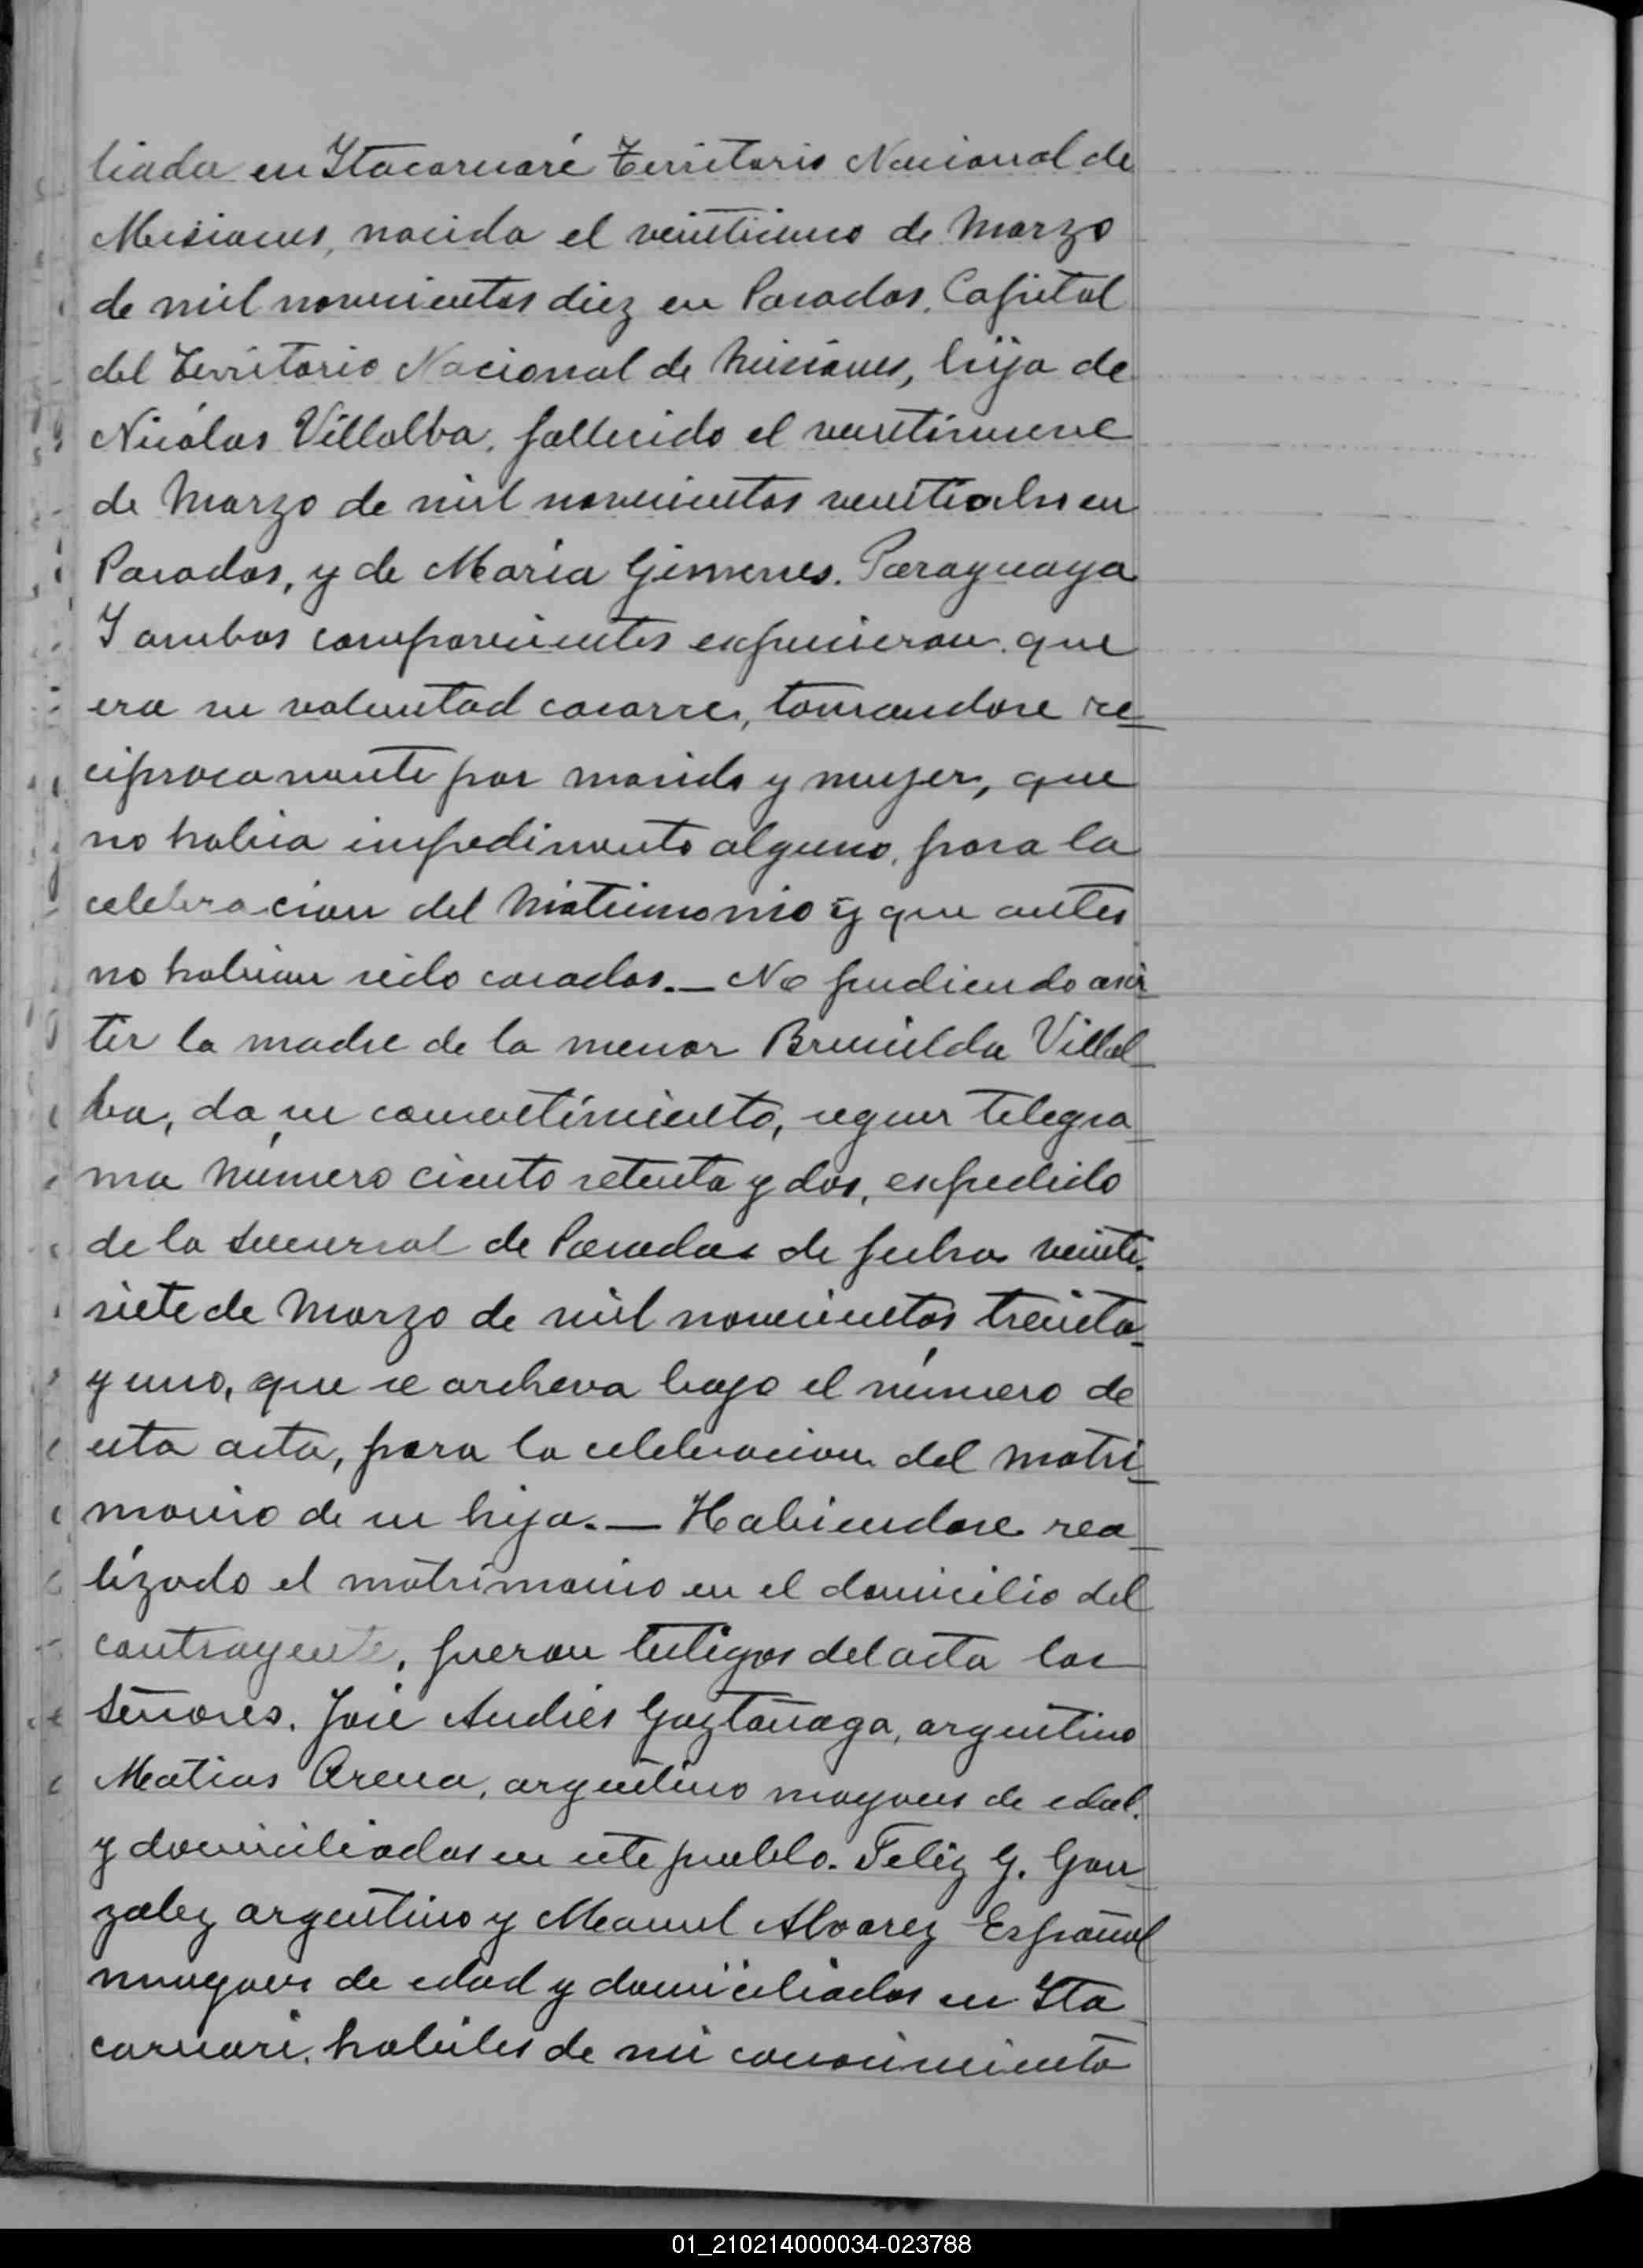 liada en Itacaruaré Territorio Nacional de
Misiones, nacida el veintiuno de Marzo
de mil novecientos diez en Posadas, Capital
del Territorio Nacional de Misiones, hija de
Nicólas Villalba, fallecido el veintinueve
de Marzo de mil novecientos veintiocho en
Posadas, y de Maria Gimenes. Paraguaya
Y ambos comparecientes expucieron que
era su voluntad casarse, tomandose re=
ciprocamente por marido y mujer, que
no habia impedimento alguno, para la
celebracion del Matrimonio y que antes
no habian sido casados.— No pudiendo asis
tir la madre de la menor Brunilda Villal
ba, da su consentimiento, segun telegra
ma número ciento setenta y dos, expedido
de la Sucursal de Posadas de fecha veinte-
siete de Marzo de mil novecientos treinta-
y uno, que se archeva bajo el número de
esta acta, para la celebracion del matri
monio de su hija.— Habiendose rea
lizado el matrimonio en el domicilio del
contrayente, fueron testigos del acta los
Señores. José Andrés Gaztañaga, argentino
Matias Arena, argentino mayores de edad.
y domiciliados en este pueblo. Feliz G. Gon
zalez argentino y Manuel Alvarez Español
mayores de edad y domiciliados en Ita
caruare, habiles de mi conocimiento
01_210214000034-023788